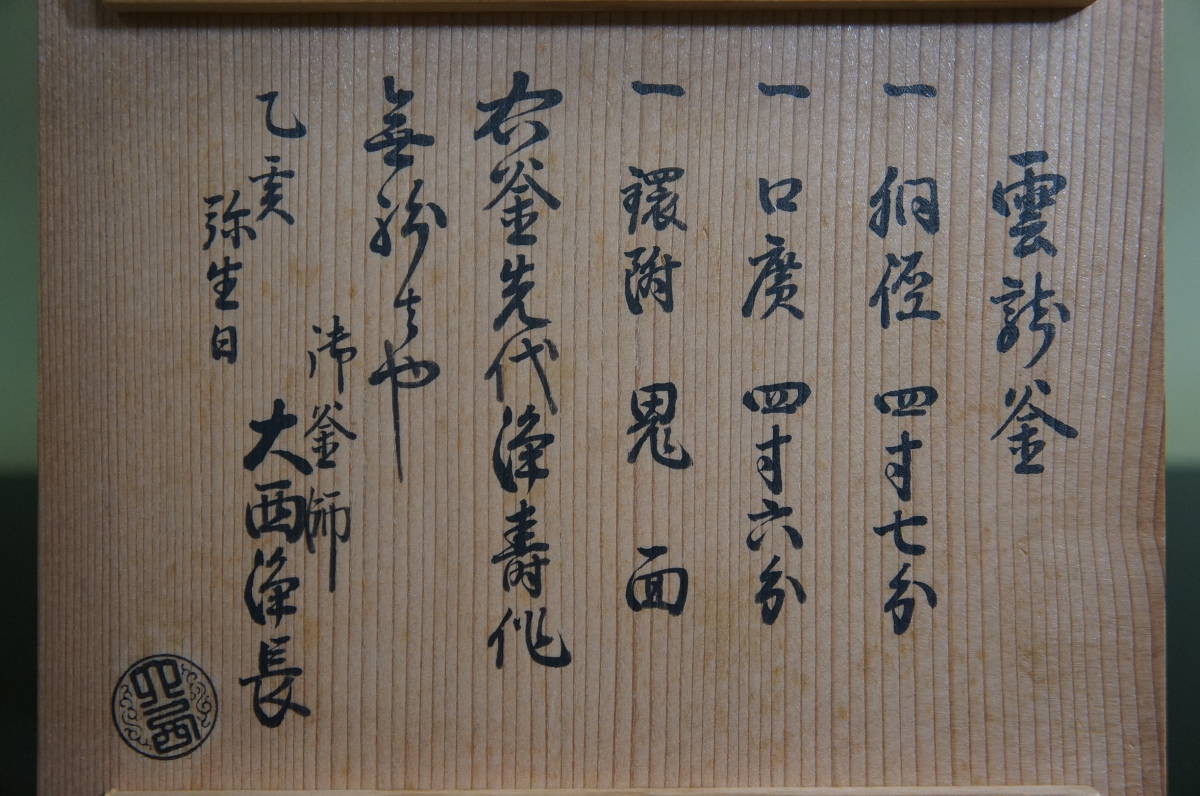 雲龍釜
一 胴径 四寸七分
一 口廣 四寸六分
一 環附 鬼面
右釜先代浄壽作
無紛者也
御釜師
大西浄長
乙亥
弥生日
大西